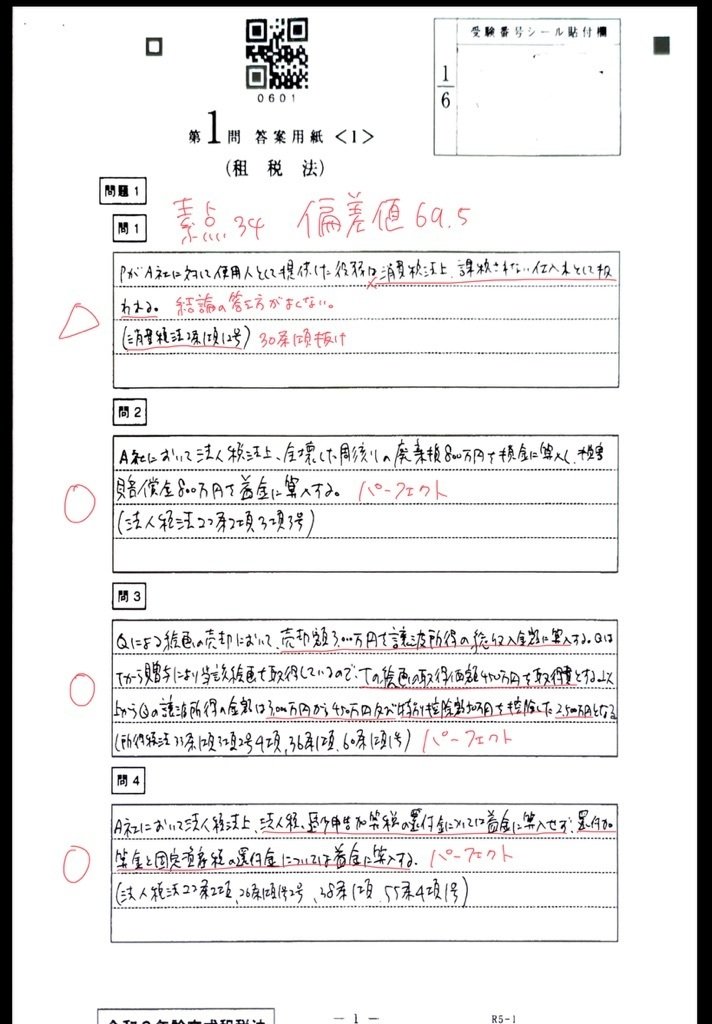 0601
受験番号シール貼付欄
1
6
第1問 答案用紙<1>
(租税法)
問題1
素点34 偏差値69.5
問1
PがA社に対して使用人として提供した役務は消費税法上、課税されない仕入れとして扱
われる。 結論の答え方がよくない。
(消費税法2条1項12号) 30条1項抜け
問2
A社において法人税法上、全壊した間仕切りの廃棄損800万円を損金に算入し、損害
賠償金800万円を益金に算入する。 パーフェクト
(法人税法22条2項3項3号)
問3
Qによる絵画の売却において、売却額3,000万円を譲渡所得の総収入金額に算入する。Qは
Tから贈与により当該絵画を取得しているので、Tの絵画の取得価額450万円を取得費とする。以
上からQの譲渡所得の金額は3,000万円から450万円及び特別控除額50万円を控除した2,500万円となる
(所得税法33条1項3項2号4項、36条1項、60条1項1号) パーフェクト
問4
A社において法人税法上、法人税、過少申告加算税の還付金については益金に算入せず、還付加
算金と固定資産税の還付金については益金に算入する。 パーフェクト
(法人税法22条2項、26条1項1号2号、38条1項、55条4項1号)
— 1 —
R5-1